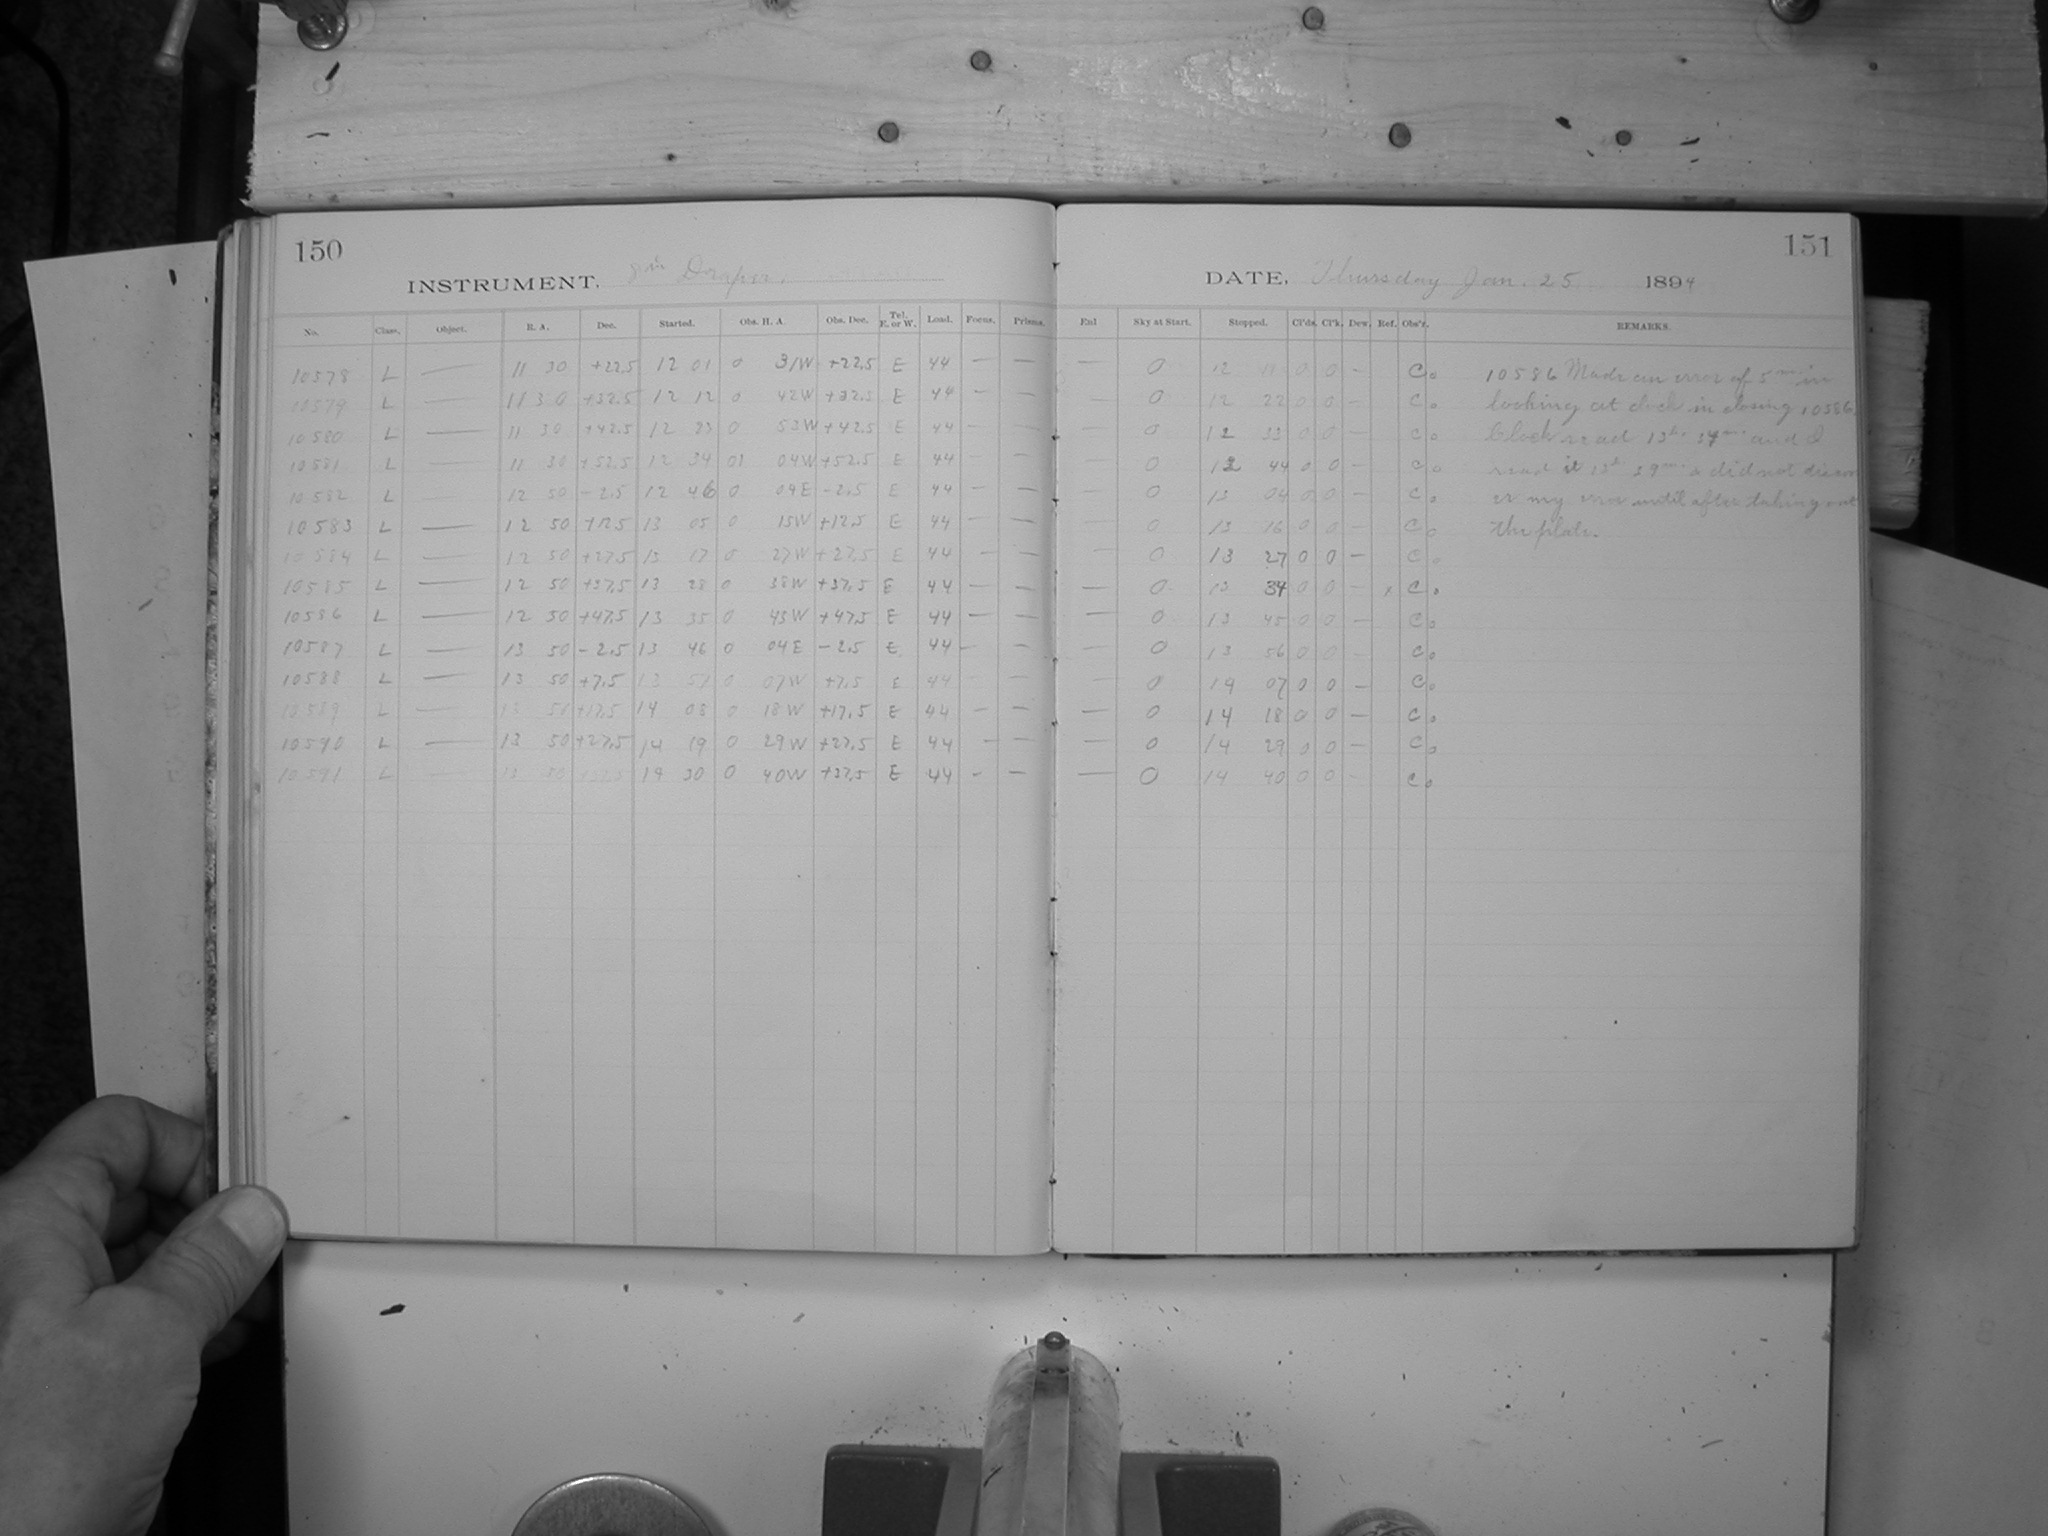 150
INSTRUMENT. 8 in Draper.
No. Class. Object. R. A. Dec. Started. Obs. H. A. Obs. Dec. Tel. E. or W. Load. Focus. Prisms.
10578 L — 11 30 +22.5 12 01 0 31W +22.5 E 44 — —
10579 L — 11 30 +32.5 12 12 0 42W +32.5 E 44 — —
10580 L — 11 30 +42.5 12 23 0 53W +42.5 E 44 — —
10581 L — 11 30 +52.5 12 34 01 04W +52.5 E 44 — —
10582 L — 12 50 -2.5 12 46 0 04E -2.5 E 44 — —
10583 L — 12 50 +12.5 13 05 0 15W +12.5 E 44 — —
10584 L — 12 50 +27.5 13 17 0 27W +27.5 E 44 — —
10585 L — 12 50 +37.5 13 28 0 38W +37.5 E 44 — —
10586 L — 12 50 +47.5 13 35 0 45W +47.5 E 44 — —
10587 L — 13 50 -2.5 13 46 0 04E -2.5 E 44 — —
10588 L — 13 50 +7.5 13 57 0 07W +7.5 E 44 — —
10589 L — 13 50 +17.5 14 08 0 18W +17.5 E 44 — —
10590 L — 13 50 +27.5 14 19 0 29W +27.5 E 44 — —
10591 L — 13 50 14 30 0 40W +37.5 E 44 — —
151
DATE. Thursday Jan. 25 1894
Enl Sky at Start. Stopped. Cl'ds. Cl'k. Dew. Ref. Obs'r. REMARKS.
— 0 12 11 0 0 — C.
— 0 12 22 0 0 — C.
— 0 12 33 0 0 — C.
— 0 12 44 0 0 — C.
— 0 13 04 0 0 — C.
— 0 13 16 0 0 — C.
— 0 13 27 0 0 — C.
— 0 13 34 0 0 — x C.
— 0 13 45 0 0 — C.
— 0 13 56 0 0 — C.
— 0 14 07 0 0 — C.
— 0 14 18 0 0 — C.
— 0 14 29 0 0 — C.
— 0 14 40 0 0 — C.
10586 Made an error of 5m in
looking at clock in closing 10586.
Clock read 13h 34m and I
read it 13h 39m & did not discov
er my error until after taking out
the plate.